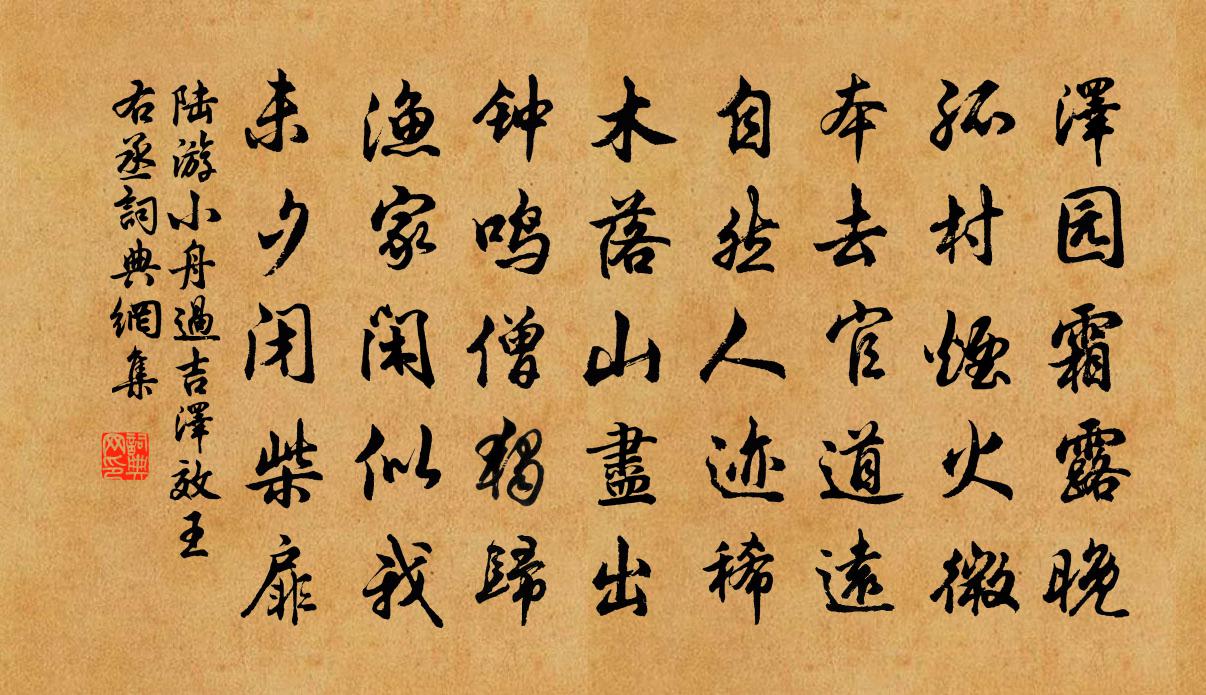 澤园霜露晚
孤村煙火微
本去官道遠
自然人迹稀
木落山盡出
钟鸣僧獨歸
漁家閑似我
未夕闭柴扉
陆游小舟過吉澤效王
右丞詞典網集
詞典网印